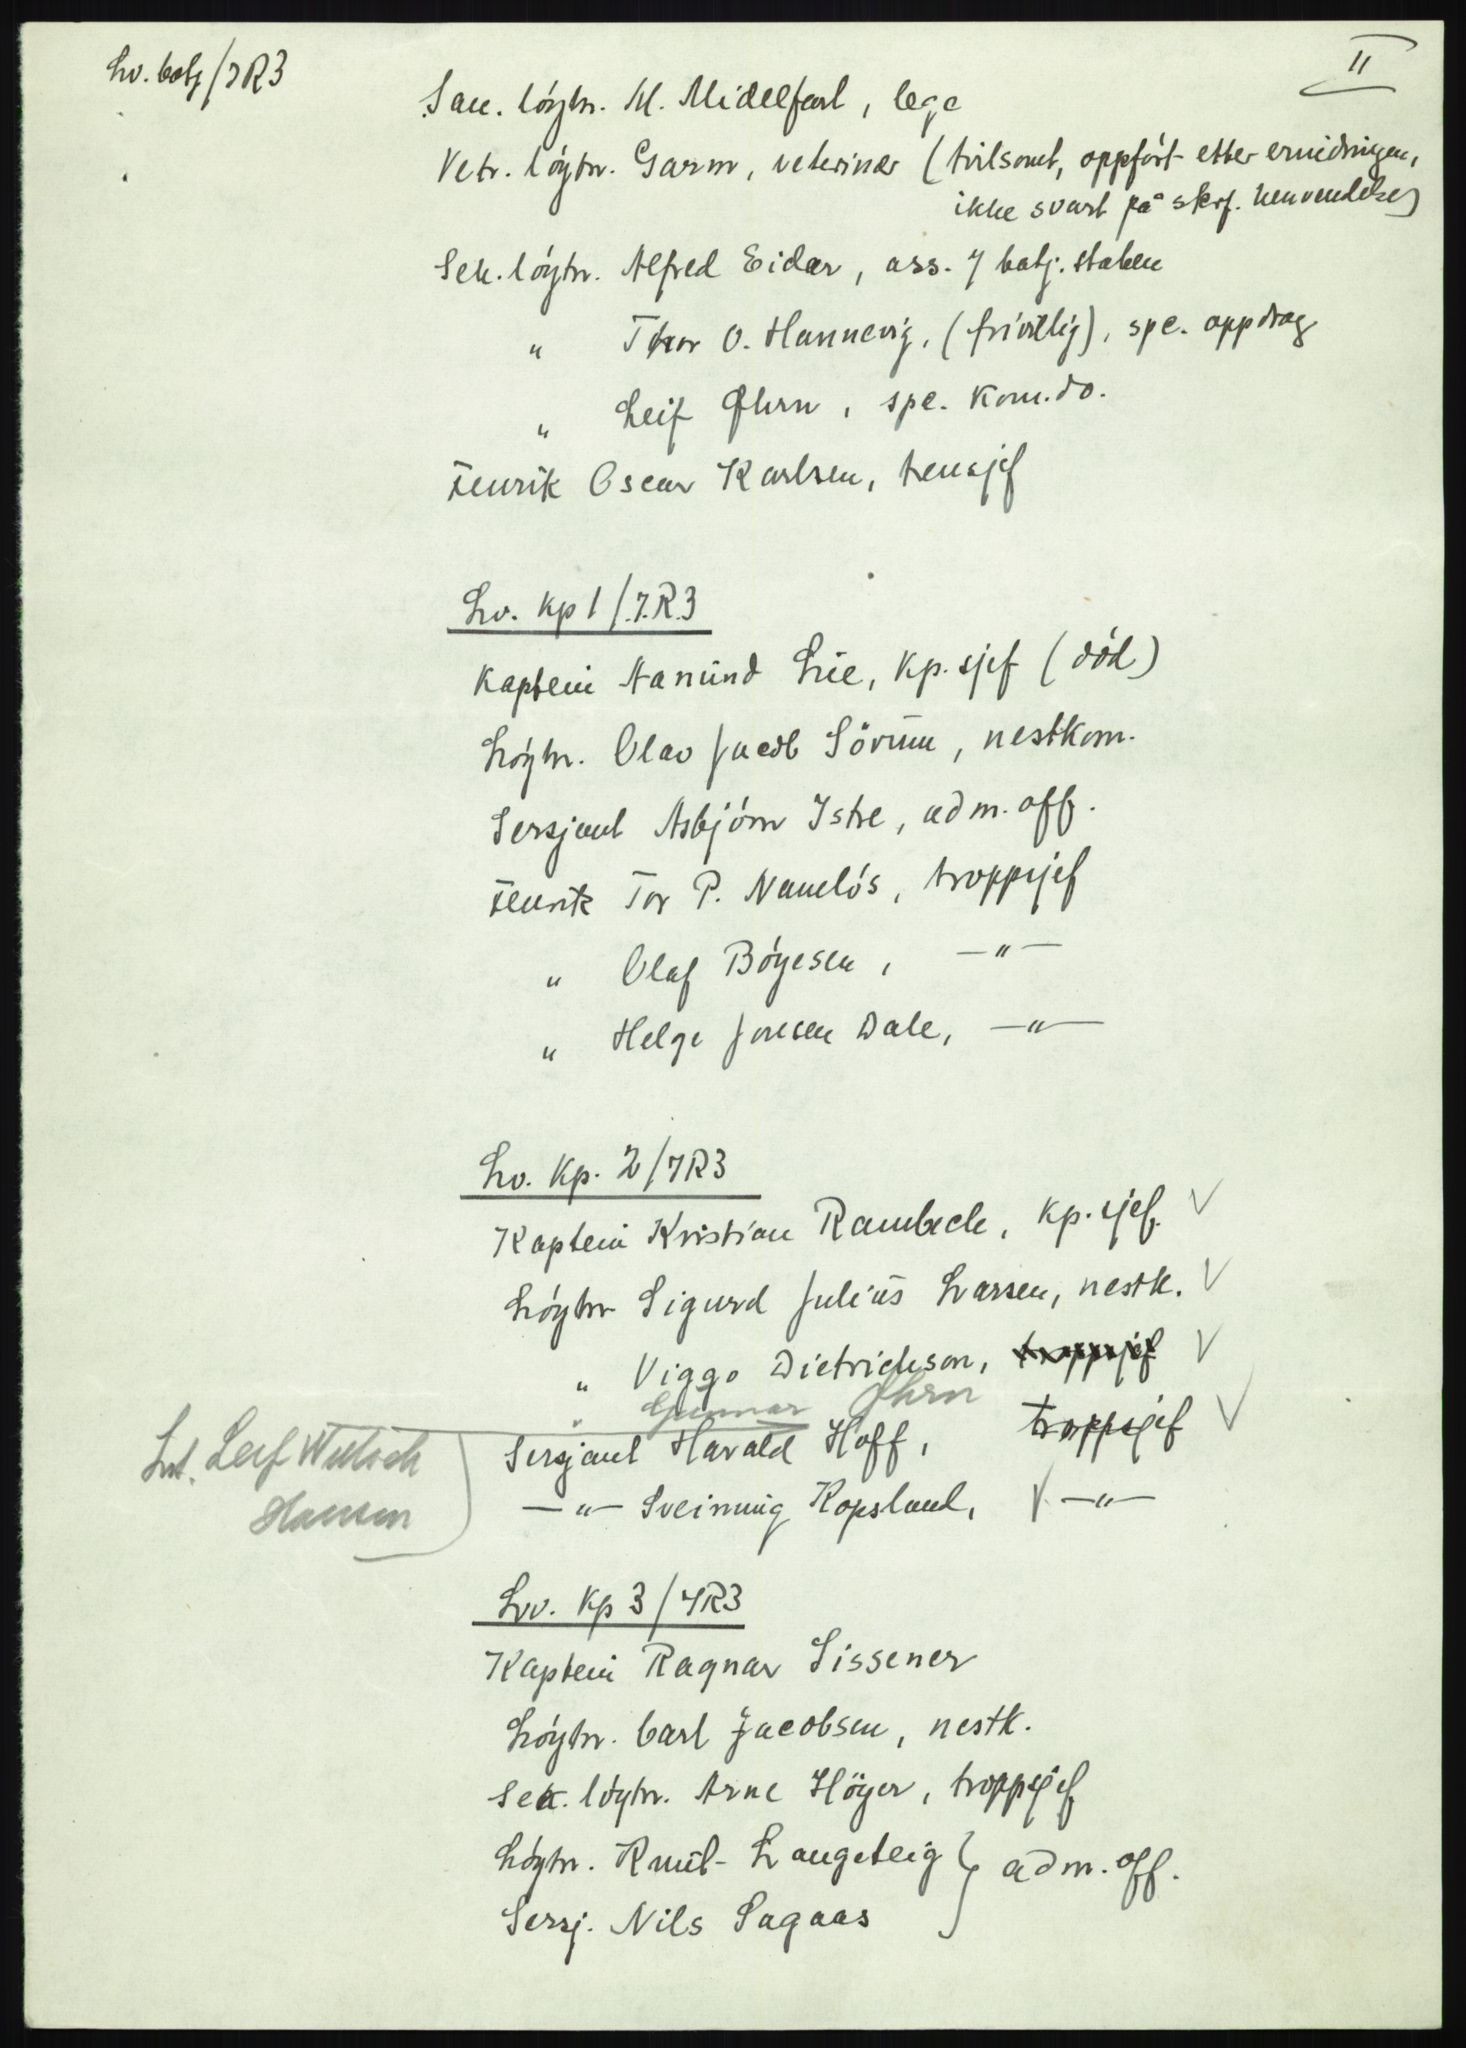 Lv. batj/7R3
II
San. løytn. M. Middelfart, lege
Vetr. løytn. Garm, veterinær (tvilsomt, oppført etter
ikke svart på skrf. henvendelse)
Sek. løytn. Alfred Eider, ass. i batj. staben
" Thor O. Hannevig, (frivillig), spe. oppdrag
" Leif Øhrn, spe. kom.do.
Fenrik Oscar Karlsen, trensjef
Lv. kp 1/7.R.3
Kaptein Aamund Lie, kp. sjef (død)
Løytn. Olav Jacob Sörum, nestkom.
Sersjant Asbjørn Istre, adm. off.
Fenrik Tor P. Namløs, troppsjef
" Olaf Bøyesen, —"—
" Helge Jonsen Dale, —"—
Lv. Kp. 2/7R3
Kaptein Kristian Rambech, kp. sjef. V
Løytn Sigurd Julius Larsen, nestk. V
" Viggo Dietrichson, troppsjef V
" Gunnar Øhrn
Sersjant Harald Hoff, troppsjef V
—"— Sveinung Kopsland, V —"—
Lnt. Leif
Hansen
Lv. Kp 3/7R3
Kaptein Ragnar Sissener
Løytn. Carl Jacobsen, nestk.
Sek. løytn. Arne Höyer, troppsjef
Løytn. Knut Langeteig } adm. off.
Sersj. Nils Sagaas